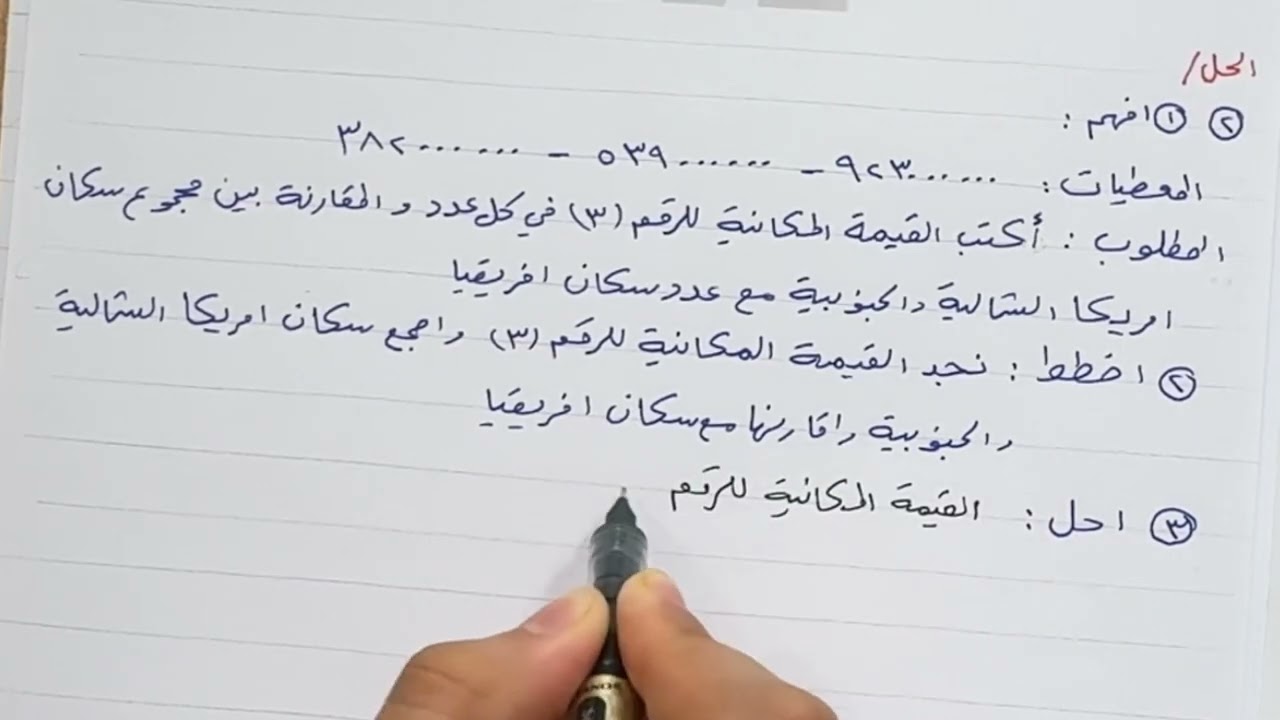 الحل/
② ① افهم :
المعطيات : ٩٢٣٠٠٠٠٠٠ - ٥٣٩٠٠٠٠٠٠ - ٣٨٢٠٠٠٠٠٠
المطلوب : أكتب القيمة المكانية للرقم (٣) في كل عدد والمقارنة بين مجموع سكان
امريكا الشمالية والجنوبية مع عدد سكان افريقيا
② اخطط : نجد القيمة المكانية للرقم (٣) واجمع سكان امريكا الشمالية
والجنوبية واقارنها مع سكان افريقيا
③ احل : القيمة المكانية للرقم